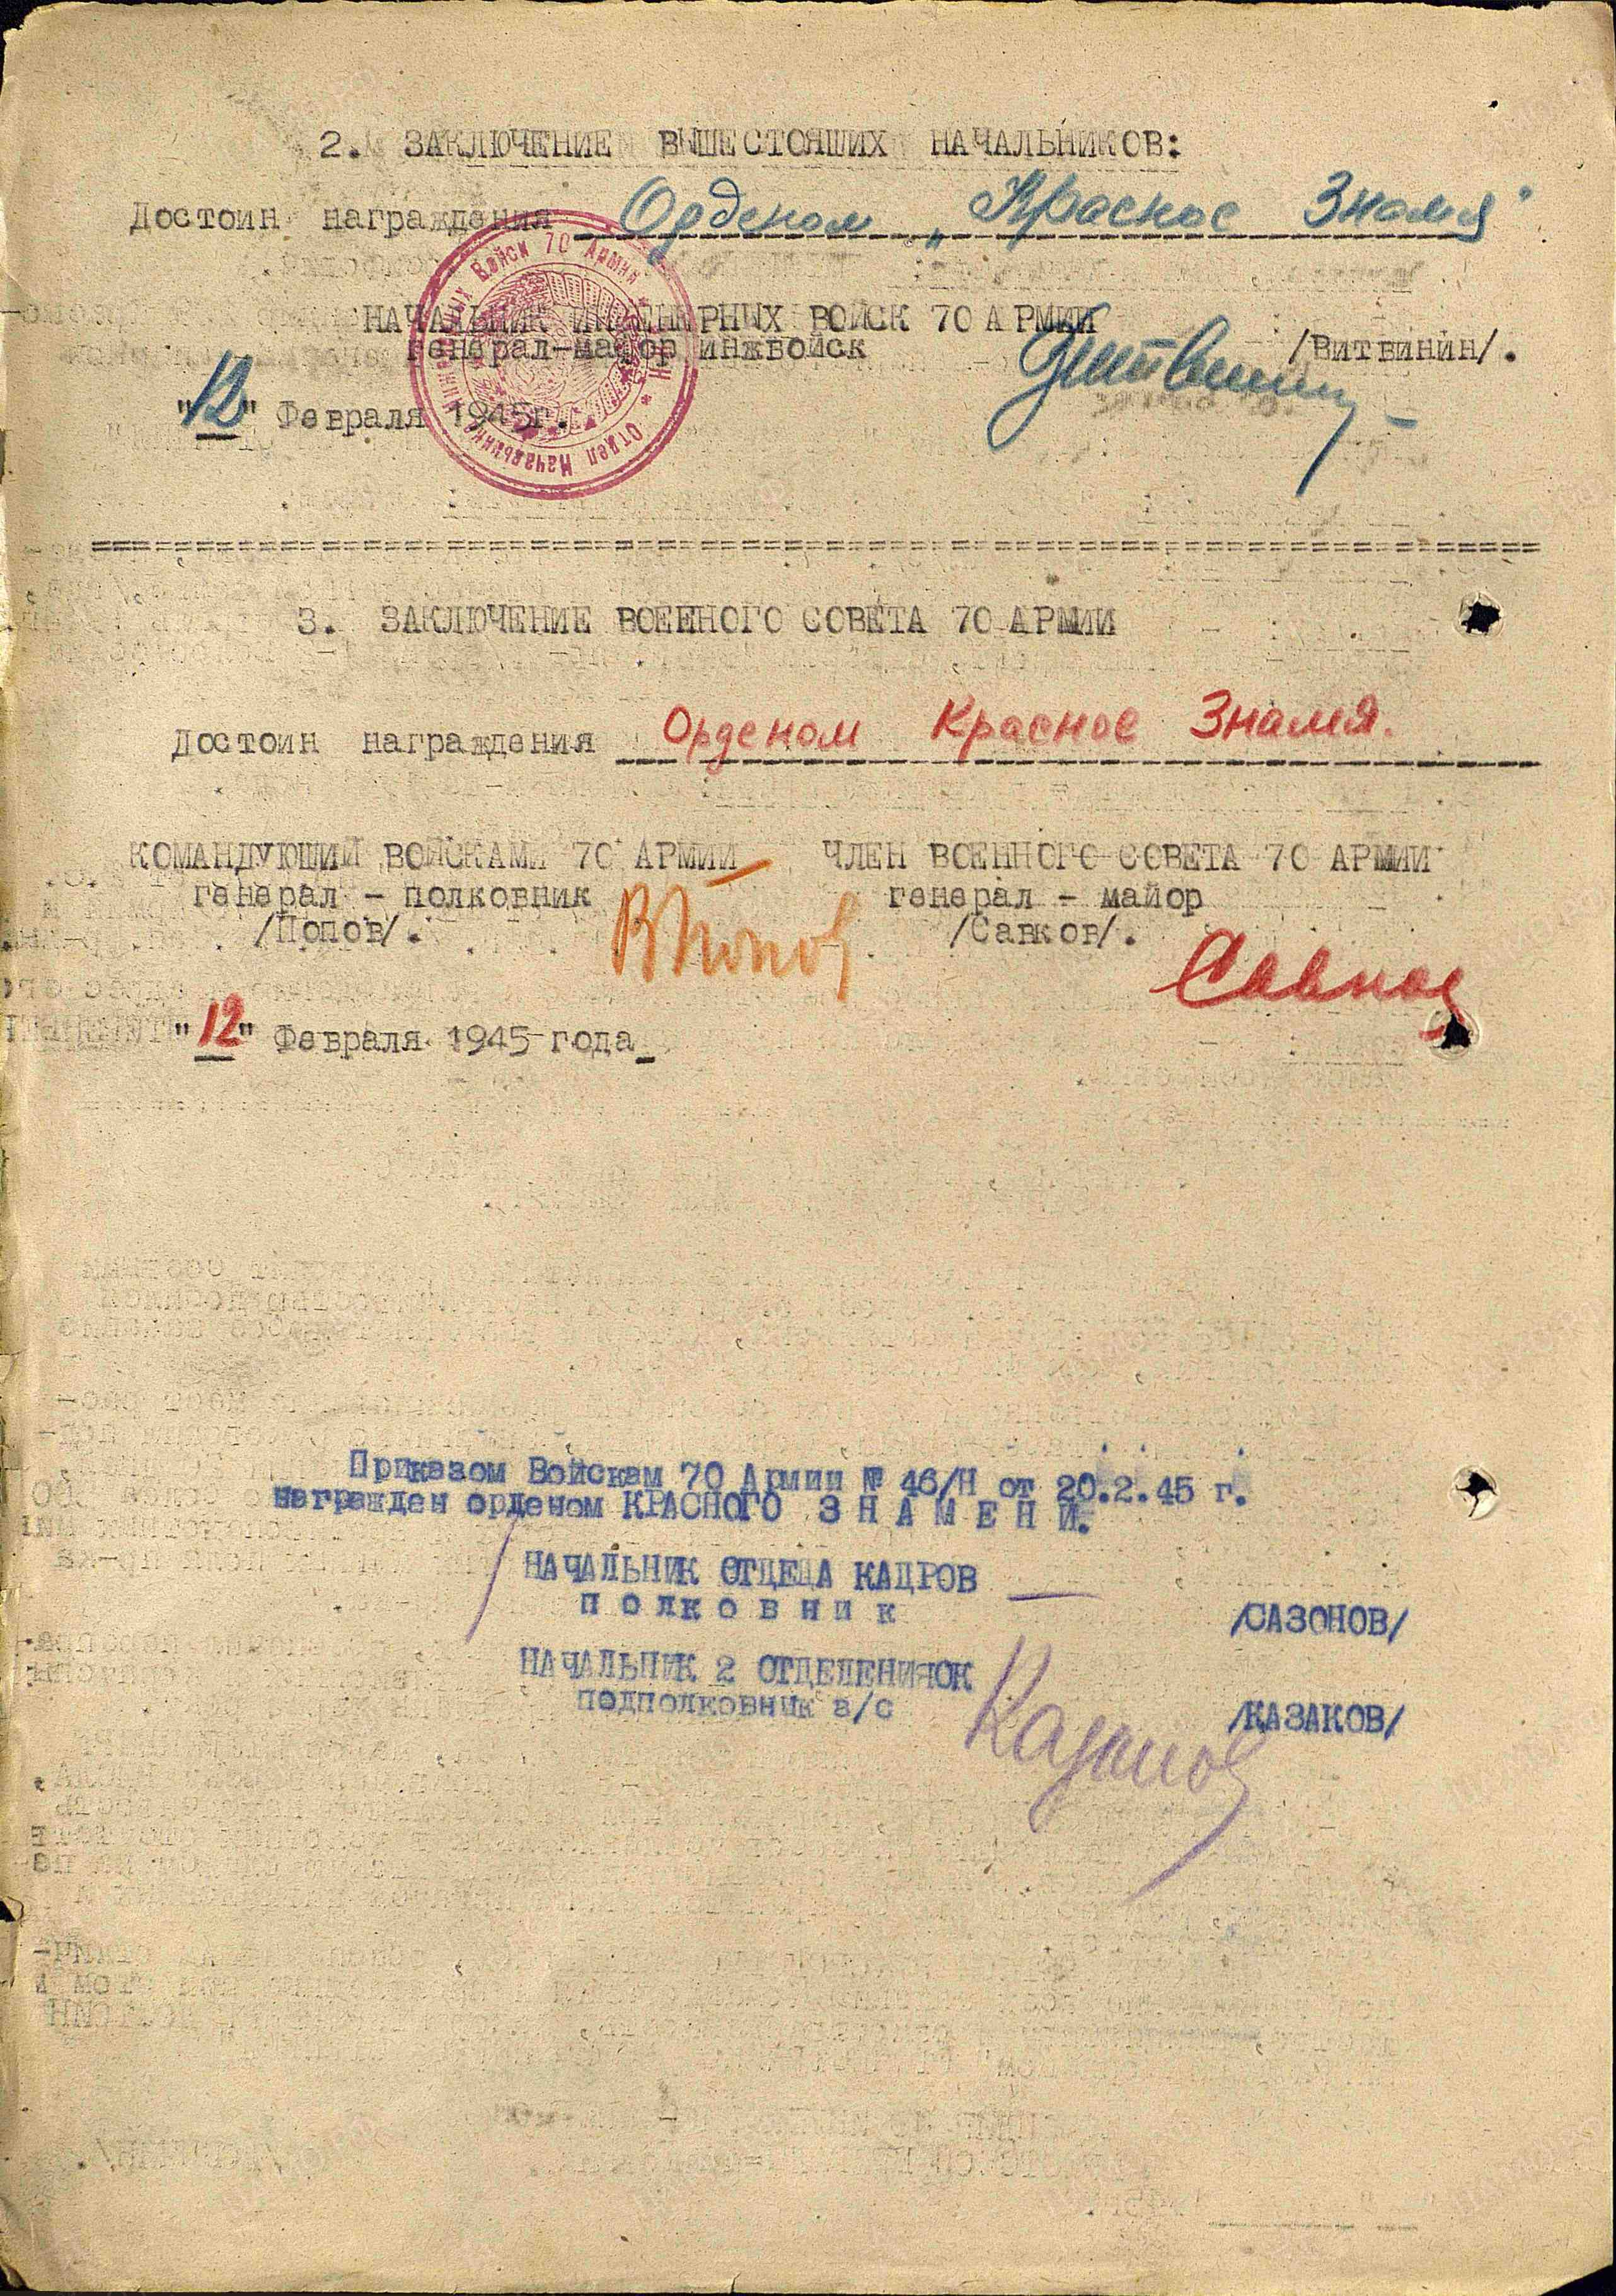 2. ЗАКЛЮЧЕНИЕ ВЫШЕСТОЯШИХ НАЧАЛЬНИКОВ:
Достоин награждения Орденом „Красное Знамя"
НАЧАЛЬНИК ИНЖЕНЕРНЫХ ВОЙСК 70 АРМИИ
генерал-майор инжвойск /Витвинин/.
"12" Февраля 1945г.
Отдел Начальника Инженерных Войск 70 Армии
3. ЗАКЛЮЧЕНИЕ ВОЕННОГО СОВЕТА 70 АРМИИ
Достоин награждения Орденом Красное Знамя.
КОМАНДУЮЩИЙ ВОЙСКАМИ 70 АРМИИ ЧЛЕН ВОЕННОГО СОВЕТА 70 АРМИИ
генерал - полковник генерал - майор
/Попов/. ВПопов /Савков/.
Савков
"12" Февраля 1945 года
Приказом Войскам 70 Армии № 46/Н от 20.2.45 г.
награжден орденом КРАСНОГО ЗНАМЕНИ.
НАЧАЛЬНИК ОТДЕЛА КАДРОВ
полковник /САЗОНОВ/
НАЧАЛЬНИК 2 ОТДЕЛЕНИЯ ОК
подполковник а/с /КАЗАКОВ/
Казаков